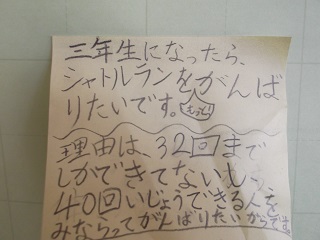 三年生になったら、
シャトルランをがんば
りたいです。
もっと
理由は、32回まで
しかできてない
40回いじょうできる人を
みならってがんばりたいからです。